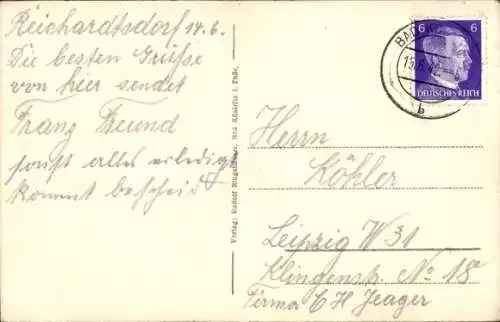 Reichardtsdorf 14.6.
Die besten Grüße
von hier sendet
Franz Freund
sonst alles erledigt
kommt bescheid
Verlag: Rudolf Bad Köstritz i. Thür.
BAD
15.6.42
b
6 6
DEUTSCHES REICH
Herrn
Köhler
Leipzig W 31
Klingenstr. No 18
Firma C H Jeager